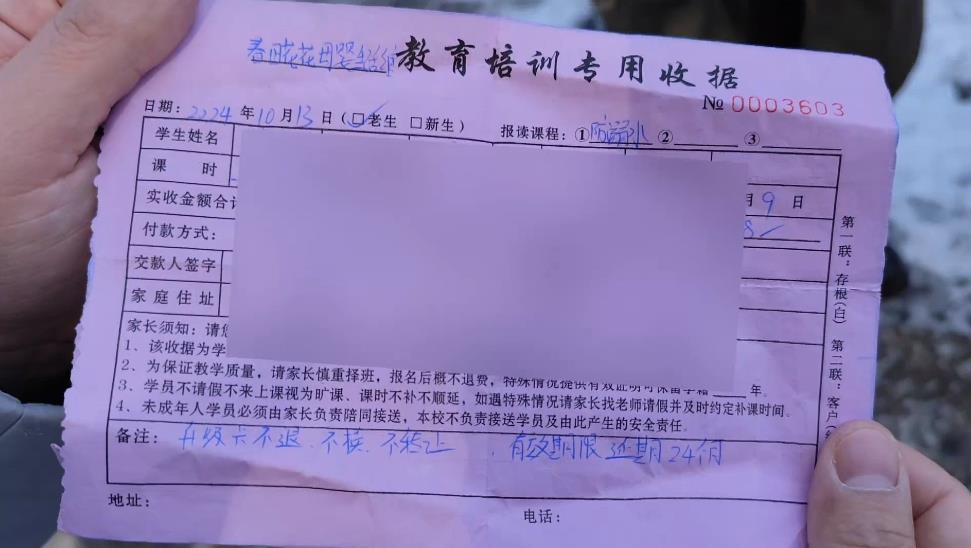 教育培训专用收据
№ 0003603
日期：2024年10月13日（☑老生 □新生） 报读课程：① ② ③
学生姓名
课 时
月9日
实收金额合计
付款方式：
交款人签字
家庭住址
家长须知：请您
1、该收据为学
2、为保证教学质量，请家长慎重择班，报名后概不退费，特殊情况提供有效证明可保留学籍____年。
3、学员不请假不来上课视为旷课、课时不补不顺延，如遇特殊情况请家长找老师请假并及时约定补课时间。
4、未成年人学员必须由家长负责陪同接送，本校不负责接送学员及由此产生的安全责任。
备注：升级卡不退、不换、不转让，有效期限延期24个月
地址： 电话：
第一联：存根（白） 第二联：客户（